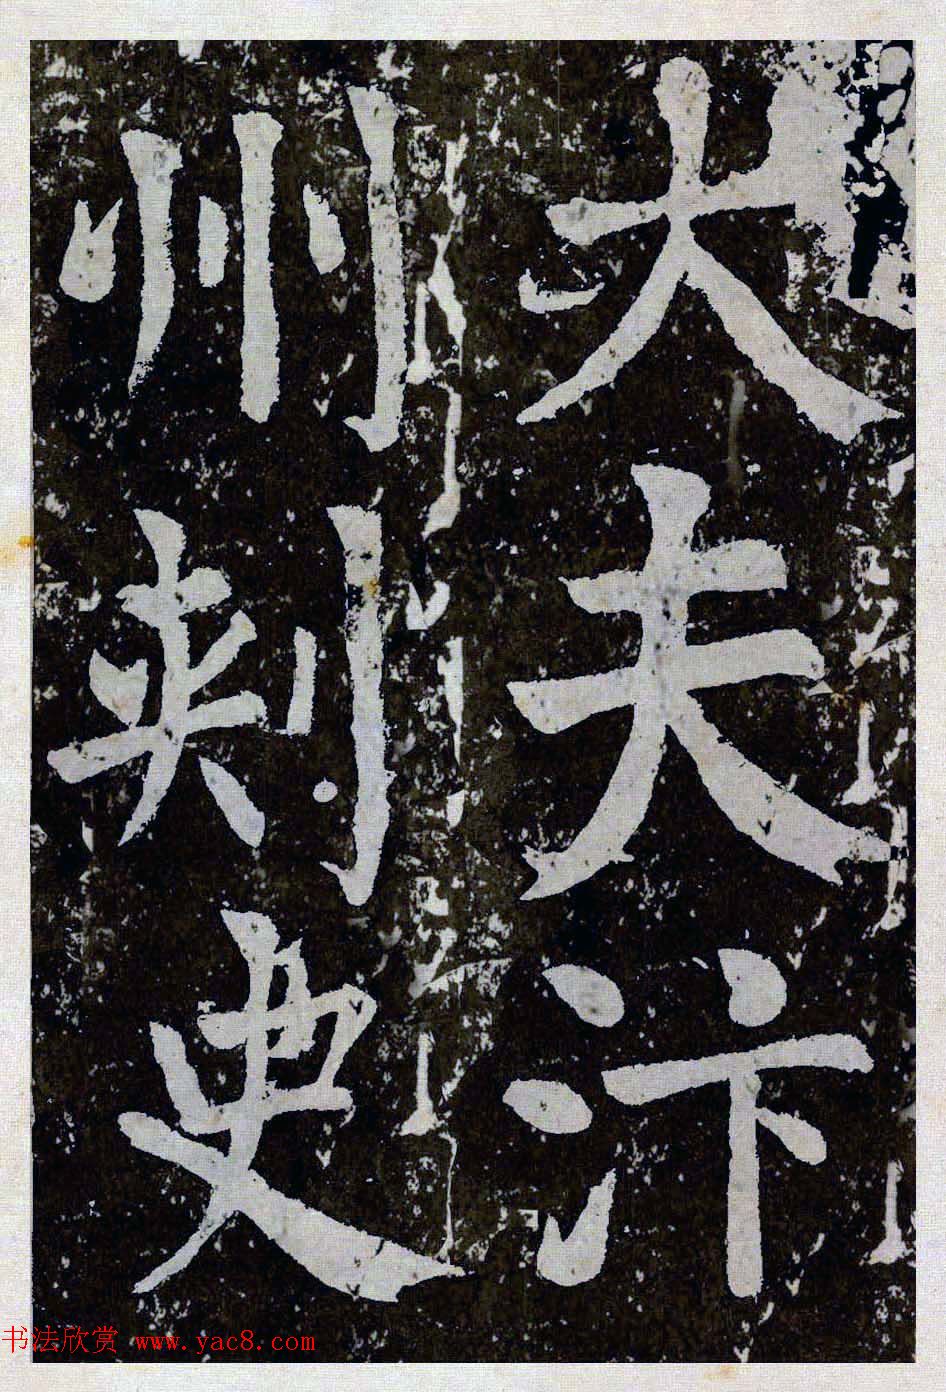 大夫汴
州刺史
书法欣赏 www.yac8.com